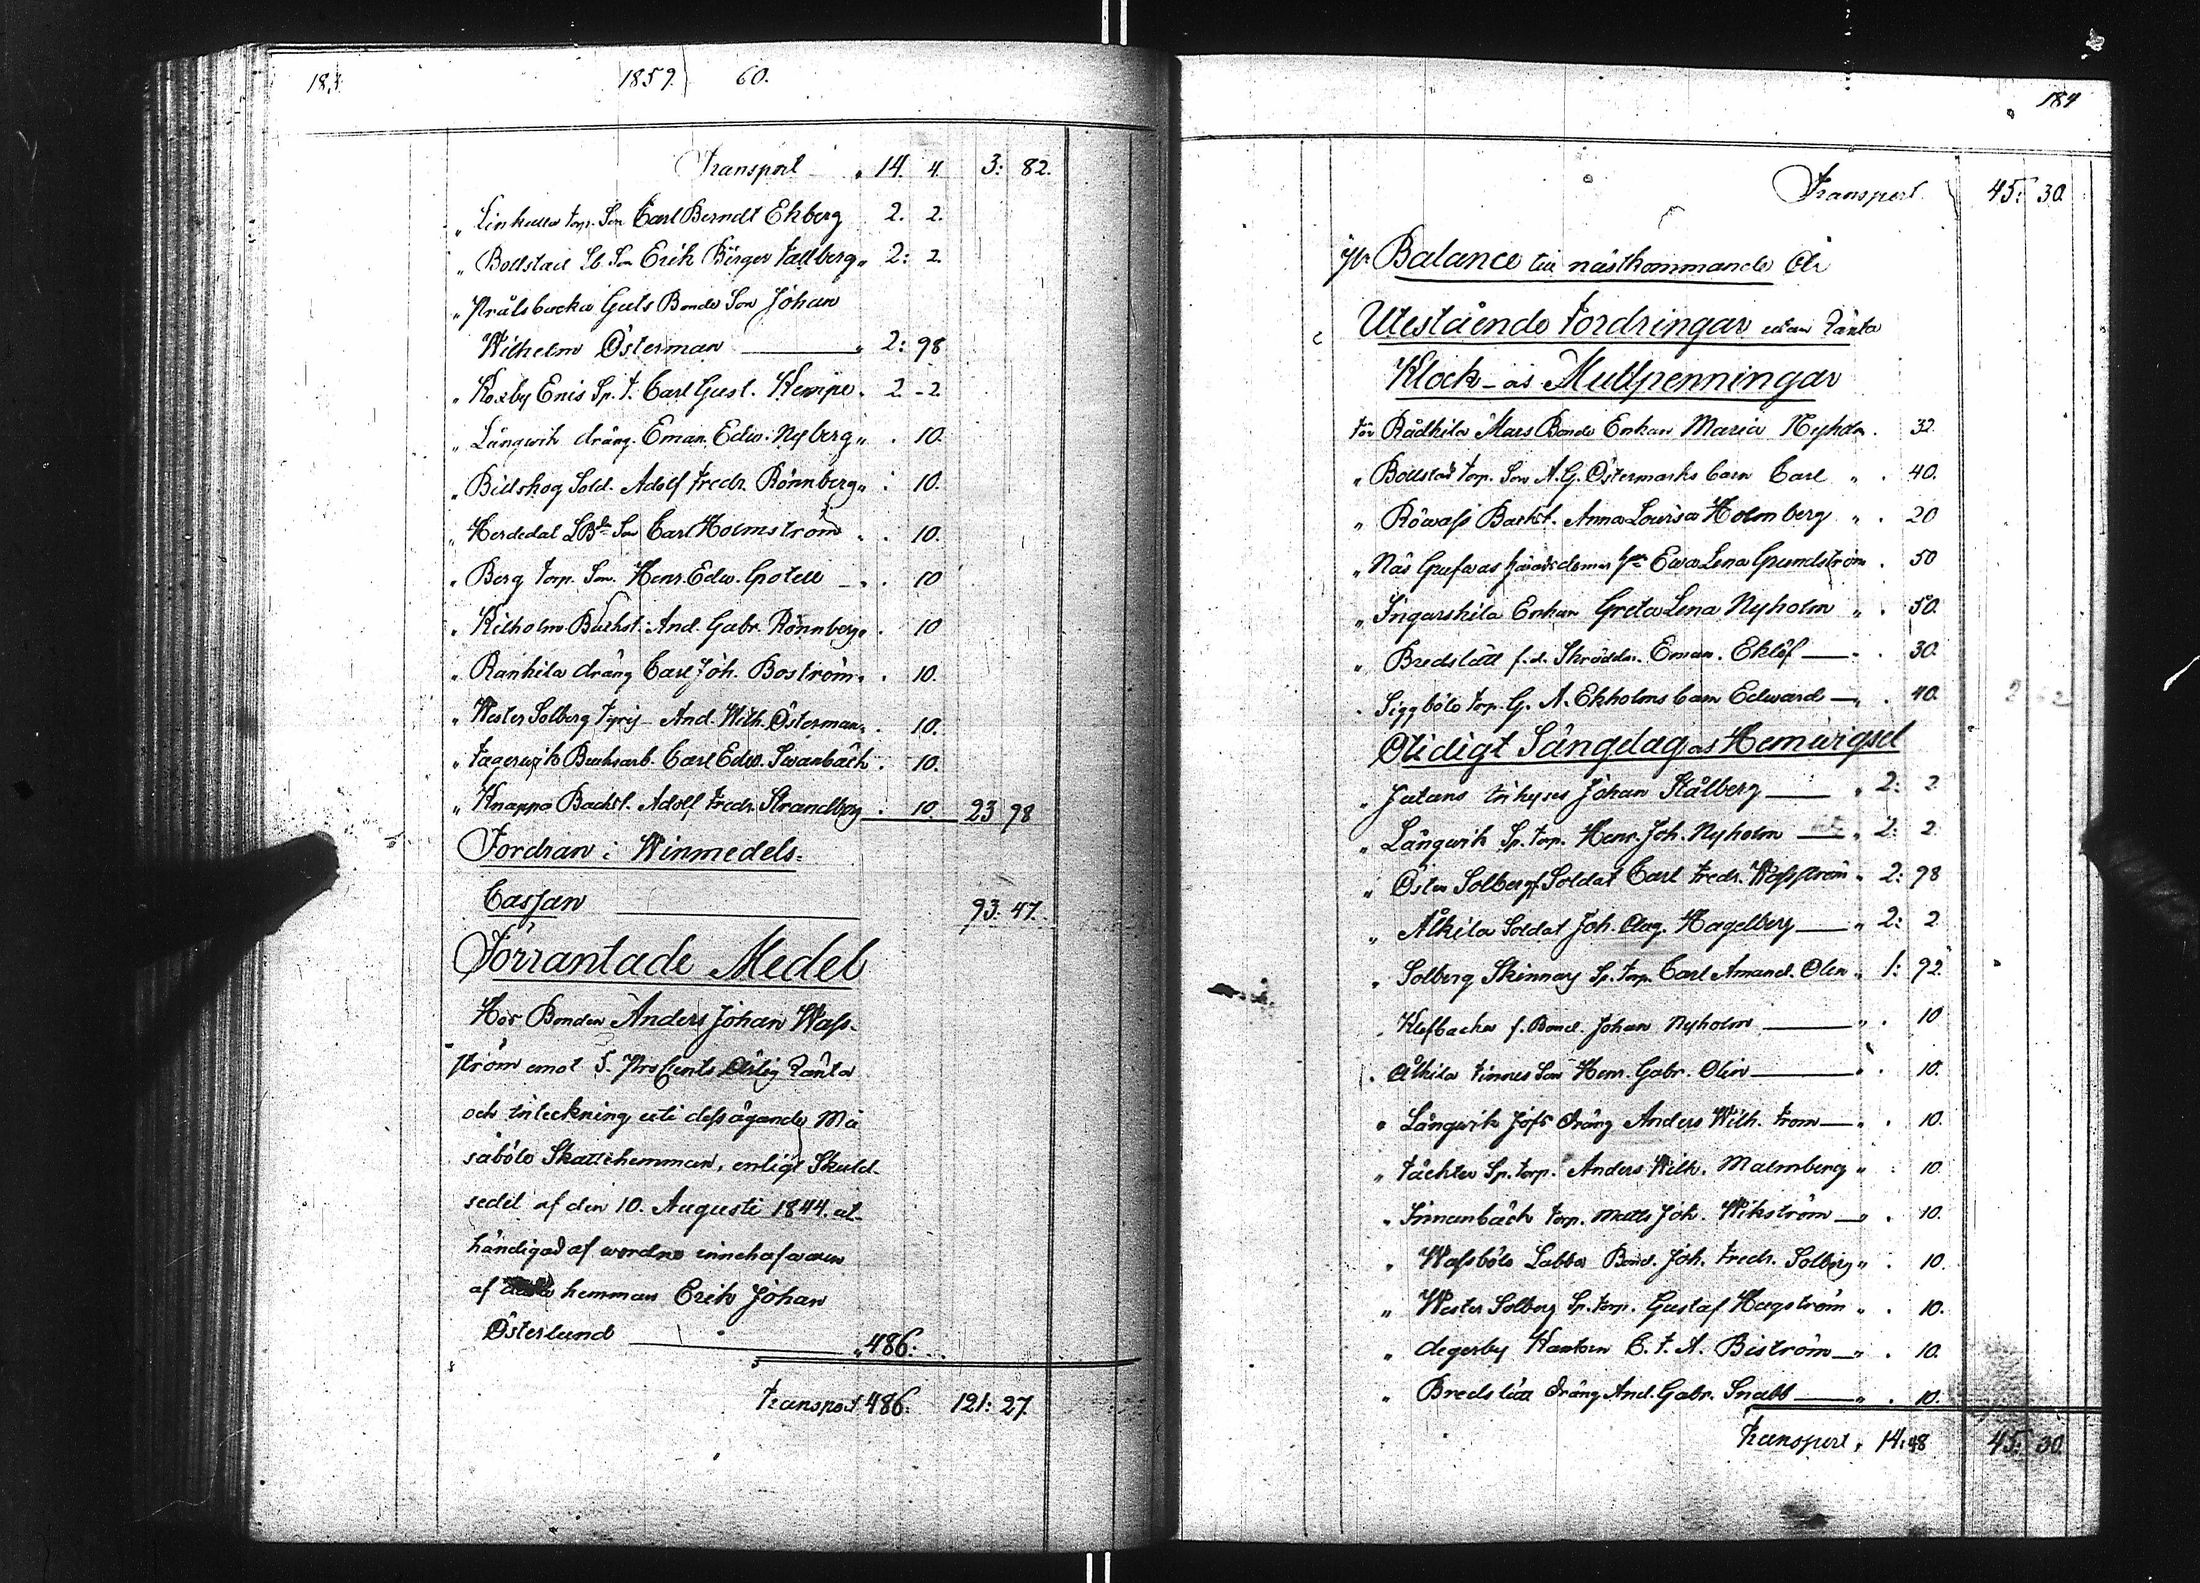 183. 1859. 60.
Transport " 14. 4. 3: 82.
" Linkulla torp. Son Carl Berndt Ekberg 2. 2.
" Bollstad Lb. Son Erik Birger Fallberg " 2: 2.
" Prålsbacka Guls Bonde Son Johan
Wilhelm Österman " 2: 98
" Koxby Enis Sp. t. Carl Gust. Kempe. 2 - 2
" Långwik dräng. Eman. Edw. Nyberg " . 10.
" Bidskog Sold. Adolf Fredr. Rönnberg " : 10.
" Herdedal Carl Holmström . . 10.
" Berg torp. Son. Henr. Edw. Gotell . 10
" Kilholm Backst. And. Gabr. Rönnberg . 10
" Rankila dräng Carl Joh. Boström " . 10.
" Wester Solberg And. Wilh. Österman " . 10.
" Fagerwik Bruksarb. Carl Edw. Swanbäck . 10.
" Knappo Backst. Adolf Fredr. Strandberg . 10 23 98
Fordran i Winmedels-
Cassan 93: 47.
Förräntade Medel
Hos Bonden Anders Johan Wass-
ström emot 5. ProCents Årlig Ränta
och inteckning uti dess ägande Må
sabôle Skattehemman, enligt Skuld-
sedel af den 10. Augusti 1844. ut-
händigad af wordne innehafwaren
af hemman Erik Johan
Österlund " 486: .
Transport 486: 121: 27.
184
Transport 45: 30
Pr Balance till nästkommande År
Utestående Fordringar utan Ränta
Klock- os Mullpenningar
för Rådkila Mars Bonde Enkan Maria Nyholm . 32.
" Bollstad torp. Son A. G. Östermarks barn Carl " . 40.
" Röwass Backst. Anna Lovisa Holmberg " . 20
" Näs Grefwas häradsdomar Ewa Lena Grundström . 50
" Ingarskila Enkan Greta Lena Nyholm " . 50.
" Bredslätt f. d. Skrädda. Eman. Eklöf . 30.
" Siggböle torp. G. A. Ekholms barn Edward . 40.
Otidigt Sängdag os Hemwigsel
" Jutans inhyses Johan Stålberg " 2: 2
" Långwik Sp. torp. Henr. Joh. Nyholm " 2: 2
" Öster Solberg Soldat Carl Fredr. Wasström " 2: 98
" Ålkila Soldat Joh. Aug. Hagelberg " 2: 2
" Solberg Skinnars Sp. torp. Carl Amand. Olin " 1: 92.
" Klefbacka f. Bond. Johan Nyholm " . 10
" Ålkila Finnes Son Henr. Gabr. Olin " . 10.
" Långwik Jofs dräng Anders Wilh. From " . 10.
" Täckter Sp. torp. Anders Wilh. Malmberg " : 10.
" Finnanbäck torp. Matts Joh. Wikström . 10.
" Wassböle Labbas Bond. Joh. Fredr. Solberg " . 10.
" Wester Solberg Sp. torp. Gustaf Hagström " . 10.
" degerby Kantorn C. F. A. Biström " . 10.
" Bredslätt dräng And. Gabr. Snabb " . 10.
Transport " 14: 48 45: 30